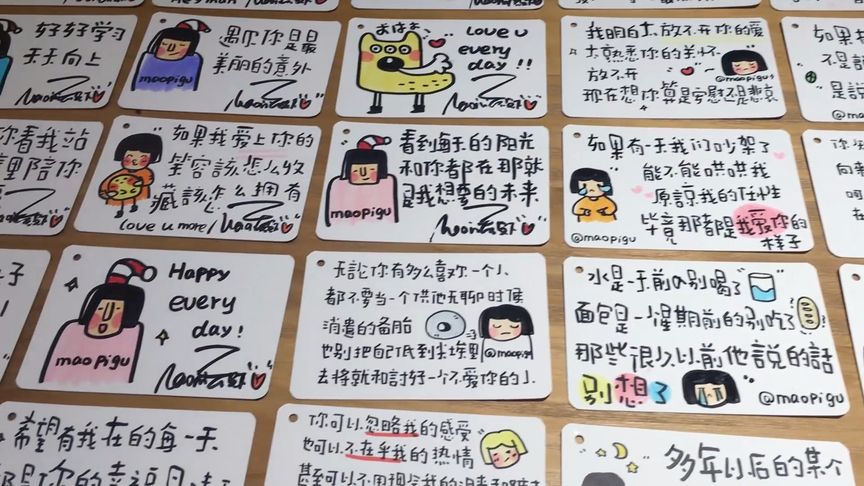 好好学习
天天向上
遇见你是最
美丽的意外
maopigu
おはよ
Love u
every
day!!
我明白太放不开你的爱
太熟悉你的关怀
放不开
现在想你算是安慰还是悲哀
@maopigu
如果
不是
是說
你看我站
里陪你
如果我爱上你的
笑容該怎么收
藏該怎么拥有
Love u more!
看到每天的阳光
和你都在那就
是我想要的未来
maopigu
如果有一天我们吵架了
能不能哄哄我
原諒我的任性
毕竟那都是我爱你的
样子
@maopigu
Happy
every
day!
maopigu
无論你有多么喜欢一个人
都不要当一个供他无聊时候
消遣的备胎
也别把自己低到尘埃里
@maopigu
去将就和討好一个不爱你的人
水是一天前的别喝了
面包是一星期前的别吃了
那些很久以前他説的話
别想了
@maopigu
希望有我在的每一天
都是你的幸福日
你可以忽略我的感受
也可以不在乎我的热情
甚至可以不用把我的
多年以后的某个